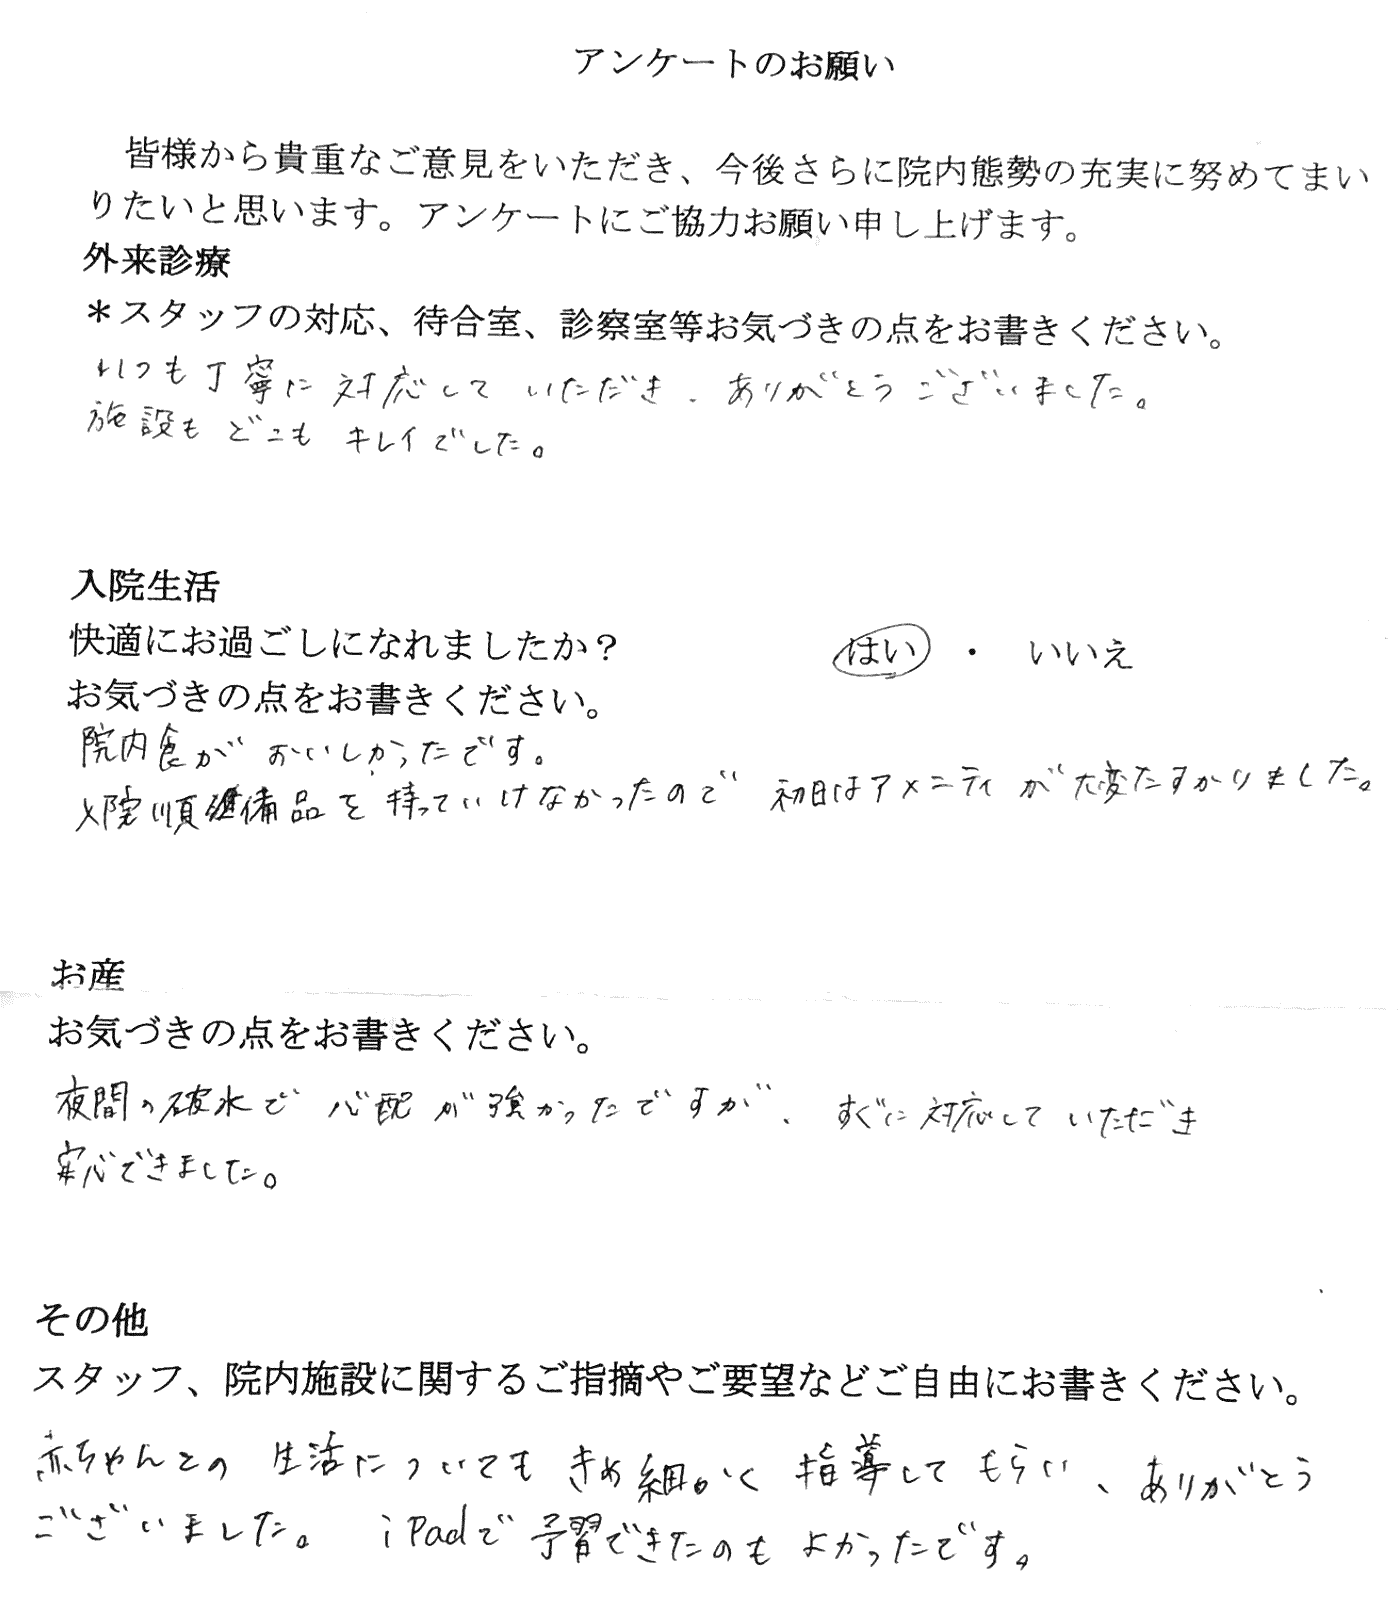 アンケートのお願い
皆様から貴重なご意見をいただき、今後さらに院内態勢の充実に努めてまい
りたいと思います。アンケートにご協力お願い申し上げます。
外来診療
＊スタッフの対応、待合室、診察室等お気づきの点をお書きください。
いつも丁寧に対応していただき、ありがとうございました。
施設もどこもキレイでした。
入院生活
快適にお過ごしになれましたか？ はい ・ いいえ
お気づきの点をお書きください。
院内食がおいしかったです。
入院準備品を持っていけなかったので初日はアメニティが大変たすかりました。
お産
お気づきの点をお書きください。
夜間の破水で心配が強かったですが、すぐに対応していただき
安心できました。
その他
スタッフ、院内施設に関するご指摘やご要望などご自由にお書きください。
赤ちゃんとの生活についてもきめ細かく指導してもらい、ありがとう
ございました。iPadで予習できたのもよかったです。